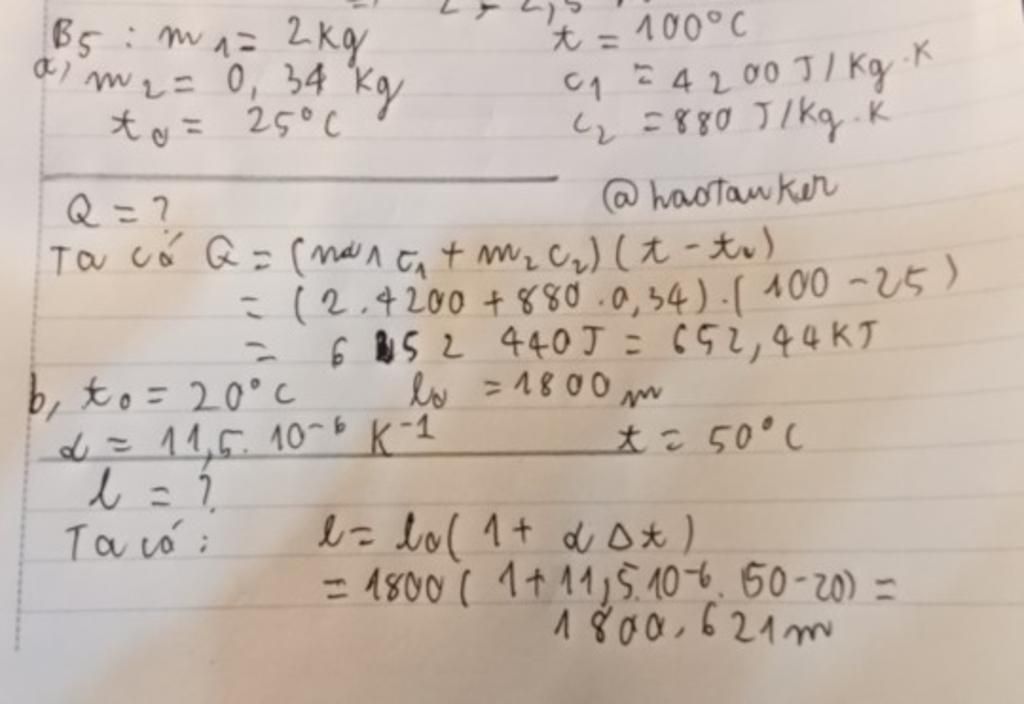 B5 : m1 = 2kg t = 100°C
a, m2 = 0,34 kg c1 = 4200J/kg.K
t0 = 25°C c2 = 880 J/kg.K
@haotanker
Q = ?
Ta có Q = (m1 c1 + m2 c2) (t - t0)
= (2.4200 + 880.0,34).(100 - 25)
= 652 440J = 652,44KJ
b, t0 = 20°C l0 = 1800 m
α = 11,5.10⁻⁶ K⁻¹ t = 50°C
l = ?
Ta có : l = l0( 1 + α Δt)
= 1800( 1+11,5.10⁻⁶.(50-20) =
1800,621m